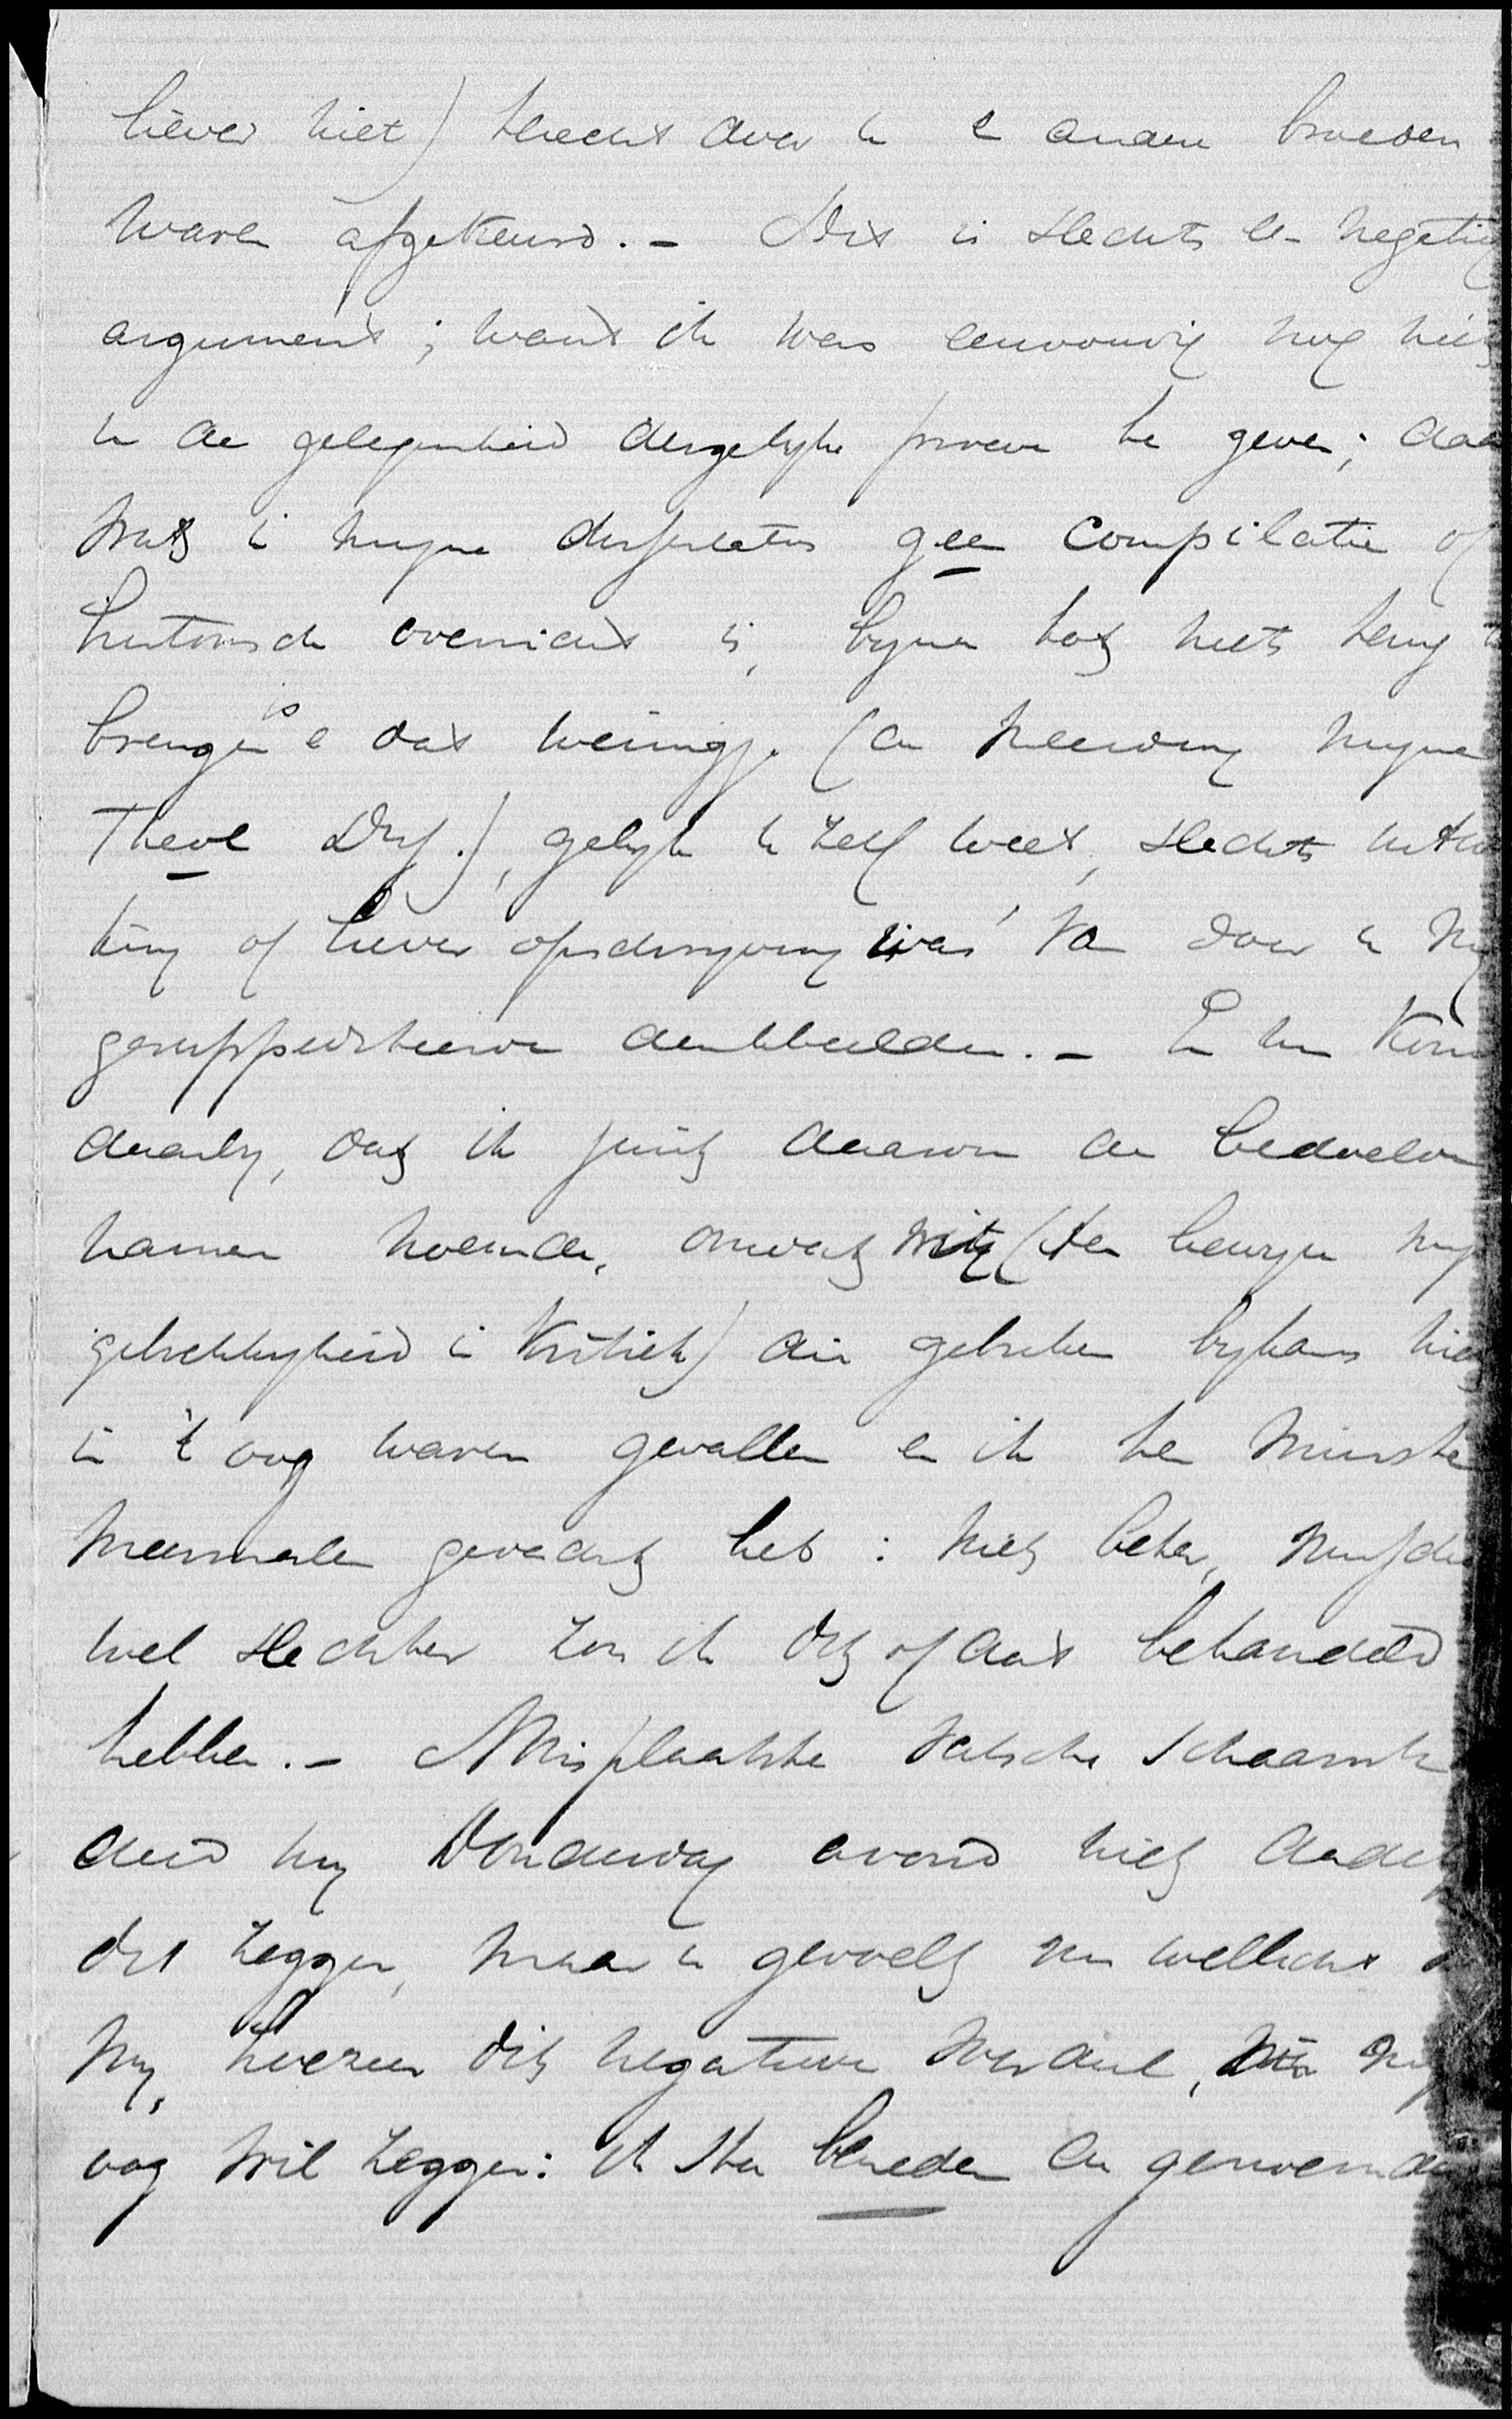 liever niet) slecht door u & andere
waren afgekeurd. – Dit is slechts een negatief
argument; want ik was eenvoudig nog niet
in de gelegenheid dergelijke proeven te geven; daar
wat in mijne dissertatie geen compilatie of
historisch overzicht is, bijna tot niets terug te
brengen is & dat weinigje (de meening mijner
Theol Diss.), gelijk u zelf weet, slechts uitbrei
ding of liever was van door u mij
gesuppediteerde denkbeelden. – En nu komt
daarbij, dat ik juist daarom de bedoelde
namen noemde, omdat mij (ten bewijze mijner
gebrekkigheid in kritiek) die gebreken bijkans niet
in 't oog waren gevallen en ik ten minste
meermalen gedacht heb: niet beter, misschien
wel slechter zou ik dit of dat behandeld
hebben. – Misplaatste valsche schaamte
deed mij Donderdag avond niet dadelijk
dit zeggen, maar u gevoelt nu wellicht
mij, hoezeer dit negatieve voordeel, in mijn
oog wil zeggen: ik sta beneden de genoemde